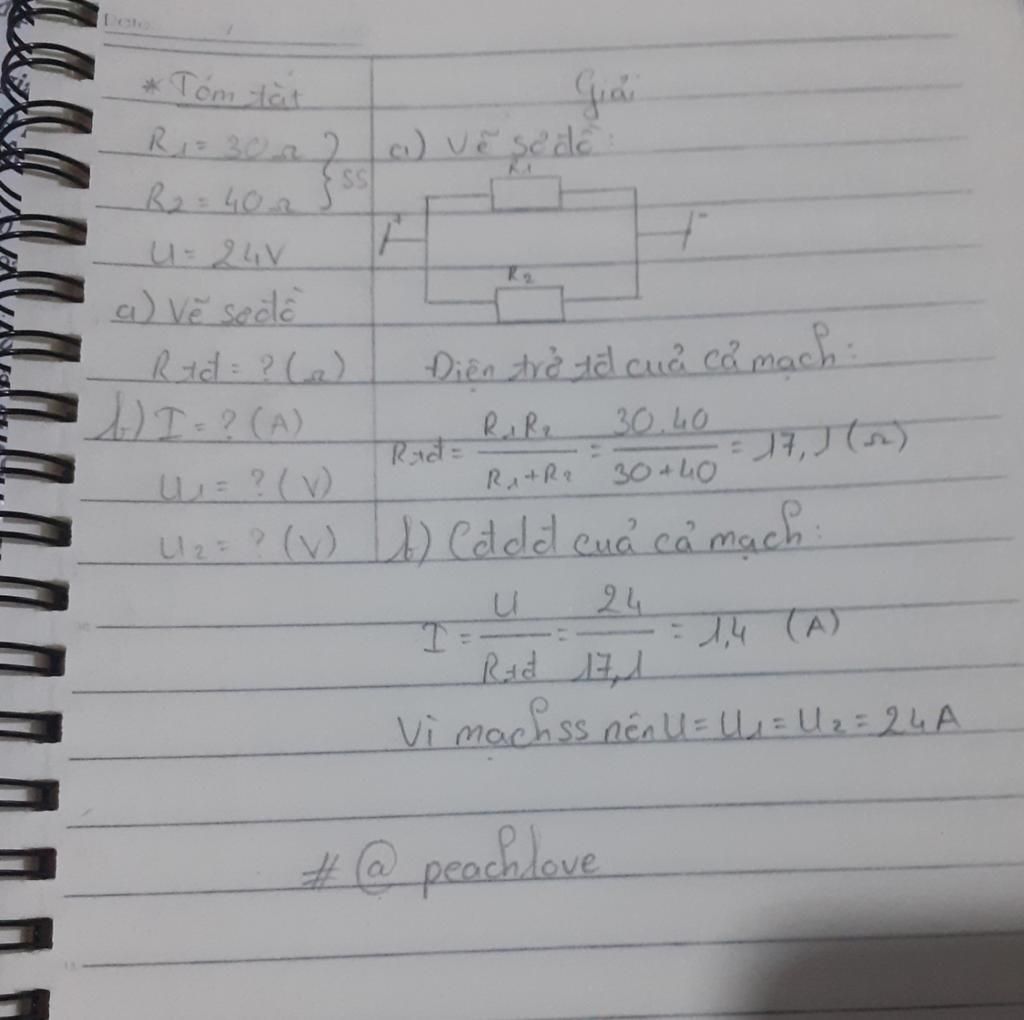 Date
* Tóm tắt
R1 = 30Ω
R2 = 40Ω
} SS
U = 24V
a) Vẽ sơ đồ
Rtđ = ? (Ω)
b) I = ? (A)
U1 = ? (V)
U2 = ? (V)
Giải
a) Vẽ sơ đồ:
R1
+ -
R2
Điện trở tđ cuả cả mạch:
Rtđ = R1R2 / R1+R2 = 30.40 / 30+40 = 17,1 (Ω)
b) Cđdđ cuả cả mạch:
I = U / Rtđ = 24 / 17,1 = 1,4 (A)
Vì mạch ss nên U = U1 = U2 = 24A
# @ peachlove